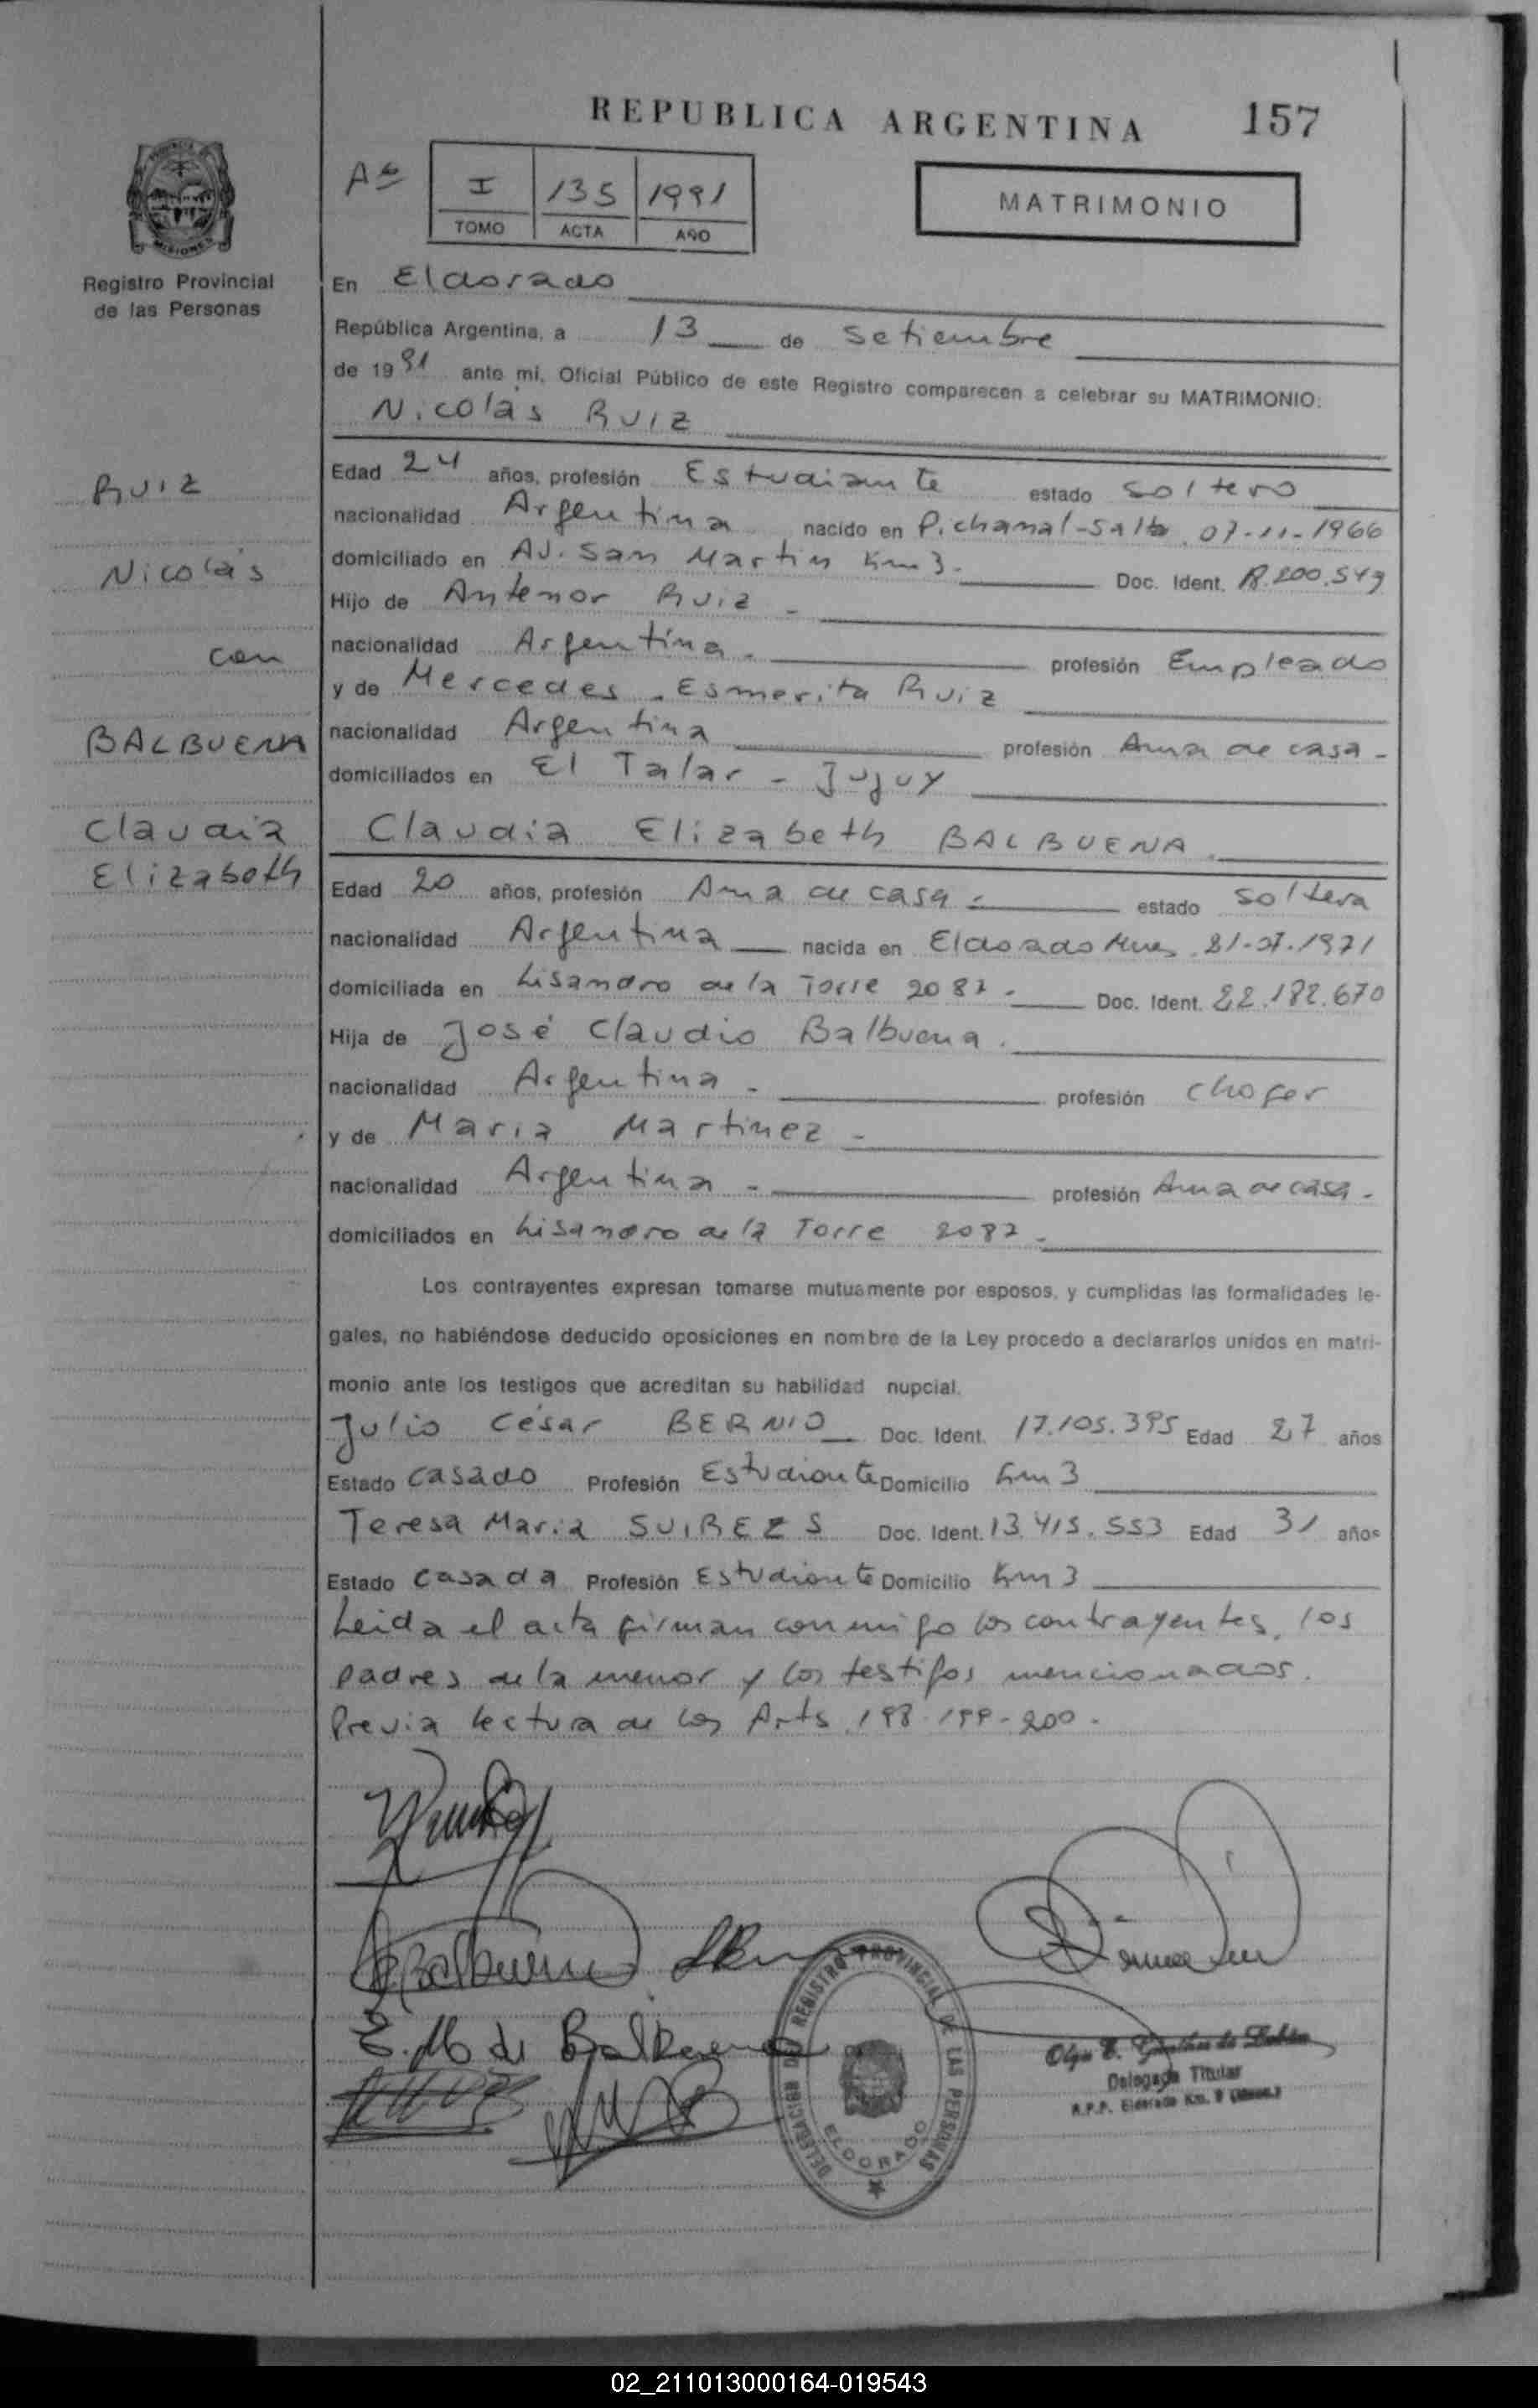 REPUBLICA ARGENTINA 157
PROVINCIA
MISIONES
Registro Provincial
de las Personas
I 135 1991
TOMO ACTA AÑO
MATRIMONIO
En Eldorado
República Argentina, a 13 de Setiembre
de 1991 ante mi, Oficial Público de este Registro comparecen a celebrar su MATRIMONIO:
Nicolás RUIZ
Ruiz
Nicolás
con
BALBUENA
Claudia
Elizabeth
Edad 24 años, profesión Estudiante estado soltero
nacionalidad Argentina nacido en Pichanal-Salta 07-11-1966
domiciliado en AV. San Martin Km 3. Doc. Ident. 18.200.549
Hijo de Antenor Ruiz -
nacionalidad Argentina - profesión Empleado
y de Mercedes Esmerita Ruiz
nacionalidad Argentina profesión Ama de casa -
domiciliados en El Talar - Jujuy
Claudia Elizabeth BALBUENA
Edad 20 años, profesión Ama de casa - estado soltera
nacionalidad Argentina nacida en Eldorado Mnes 21-07-1971
domiciliada en Lisandro de la Torre 2087 - Doc. Ident. 22.182.670
Hija de José Claudio Balbuena.
nacionalidad Argentina - profesión chofer
y de Maria Martinez -
nacionalidad Argentina - profesión Ama de casa -
domiciliados en Lisandro de la Torre 2087 -
Los contrayentes expresan tomarse mutuamente por esposos, y cumplidas las formalidades le-
gales, no habiéndose deducido oposiciones en nombre de la Ley procedo a declararlos unidos en matri-
monio ante los testigos que acreditan su habilidad nupcial.
Julio César BERNIO Doc. Ident. 17.105.395 Edad 27 años
Estado Casado Profesión Estudiante Domicilio Km 3
Teresa Maria SUIREZS Doc. Ident. 13.415.553 Edad 31 años
Estado Casada Profesión Estudiante Domicilio Km 3
Leida el acta firman conmigo los contrayentes, los
padres de la menor y los testigos mencionados.
Previa lectura de los Arts 198-199-200 -
Balbuena
E. M de Balbuena
DELEGACION DEL REGISTRO PROVINCIAL DE LAS PERSONAS
ELDORADO
Olga E. de
Delegada Titular
R.P.P. Eldorado Km. 9 (Mnes.)
02_211013000164-019543